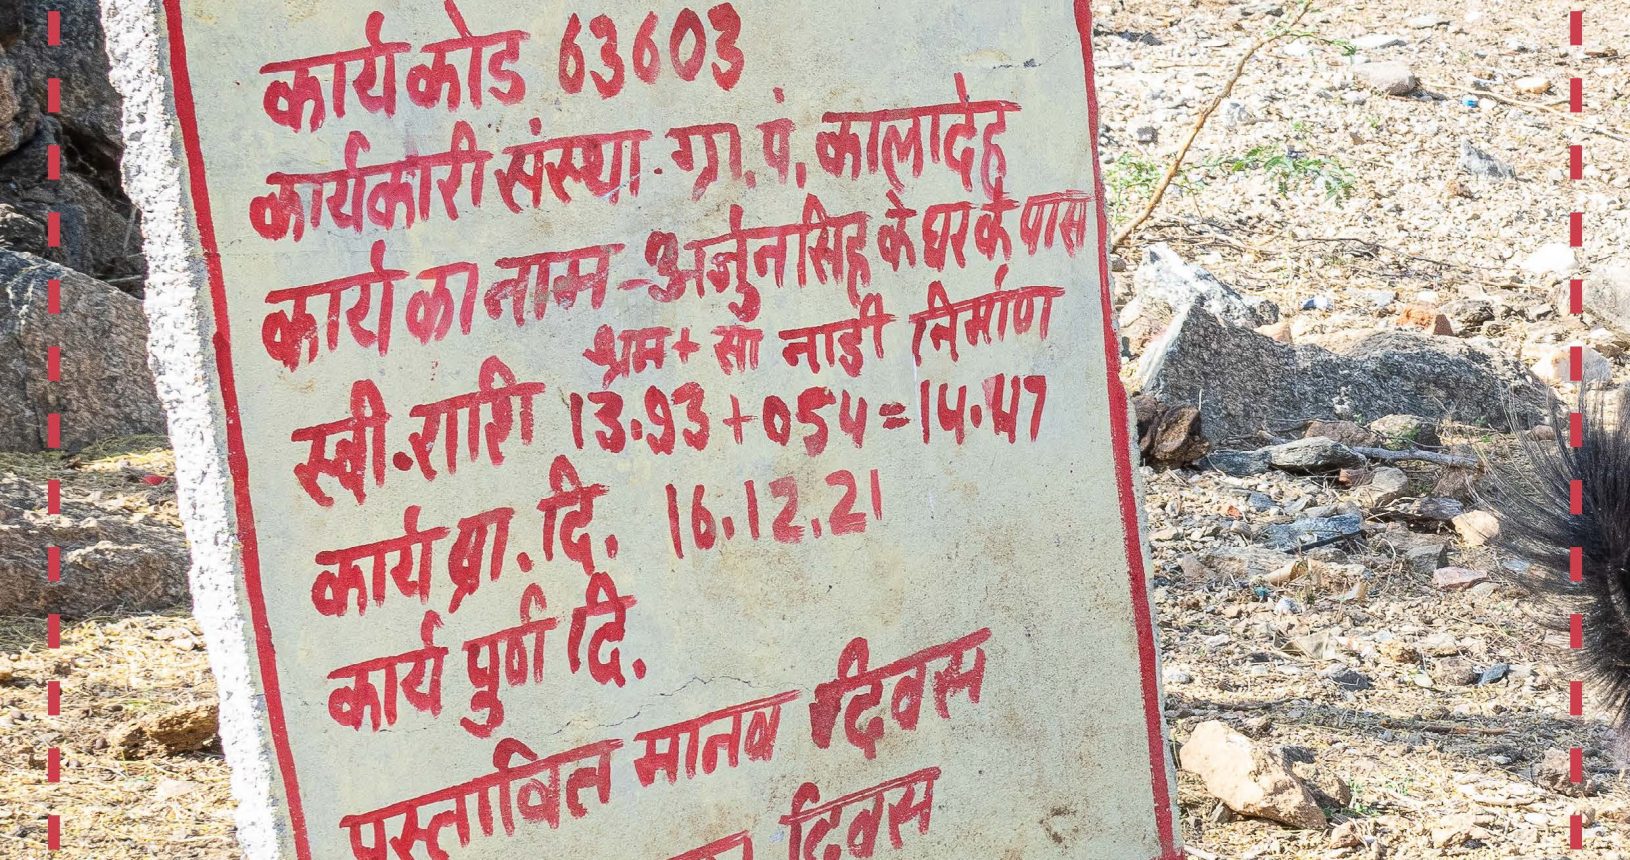 कार्य कोड 63603
कार्यकारी संस्था - ग्रा. पं. कालादेह
कार्य का नाम - अर्जुनसिंह के घर के पास
श्रम + सा नाडी निर्माण
स्वी. राशि 13.93 + 054 = 14.47
कार्य प्रा. दि. 16.12.21
कार्य पुर्ण दि.
प्रस्तावित मानव दिवस
दिवस